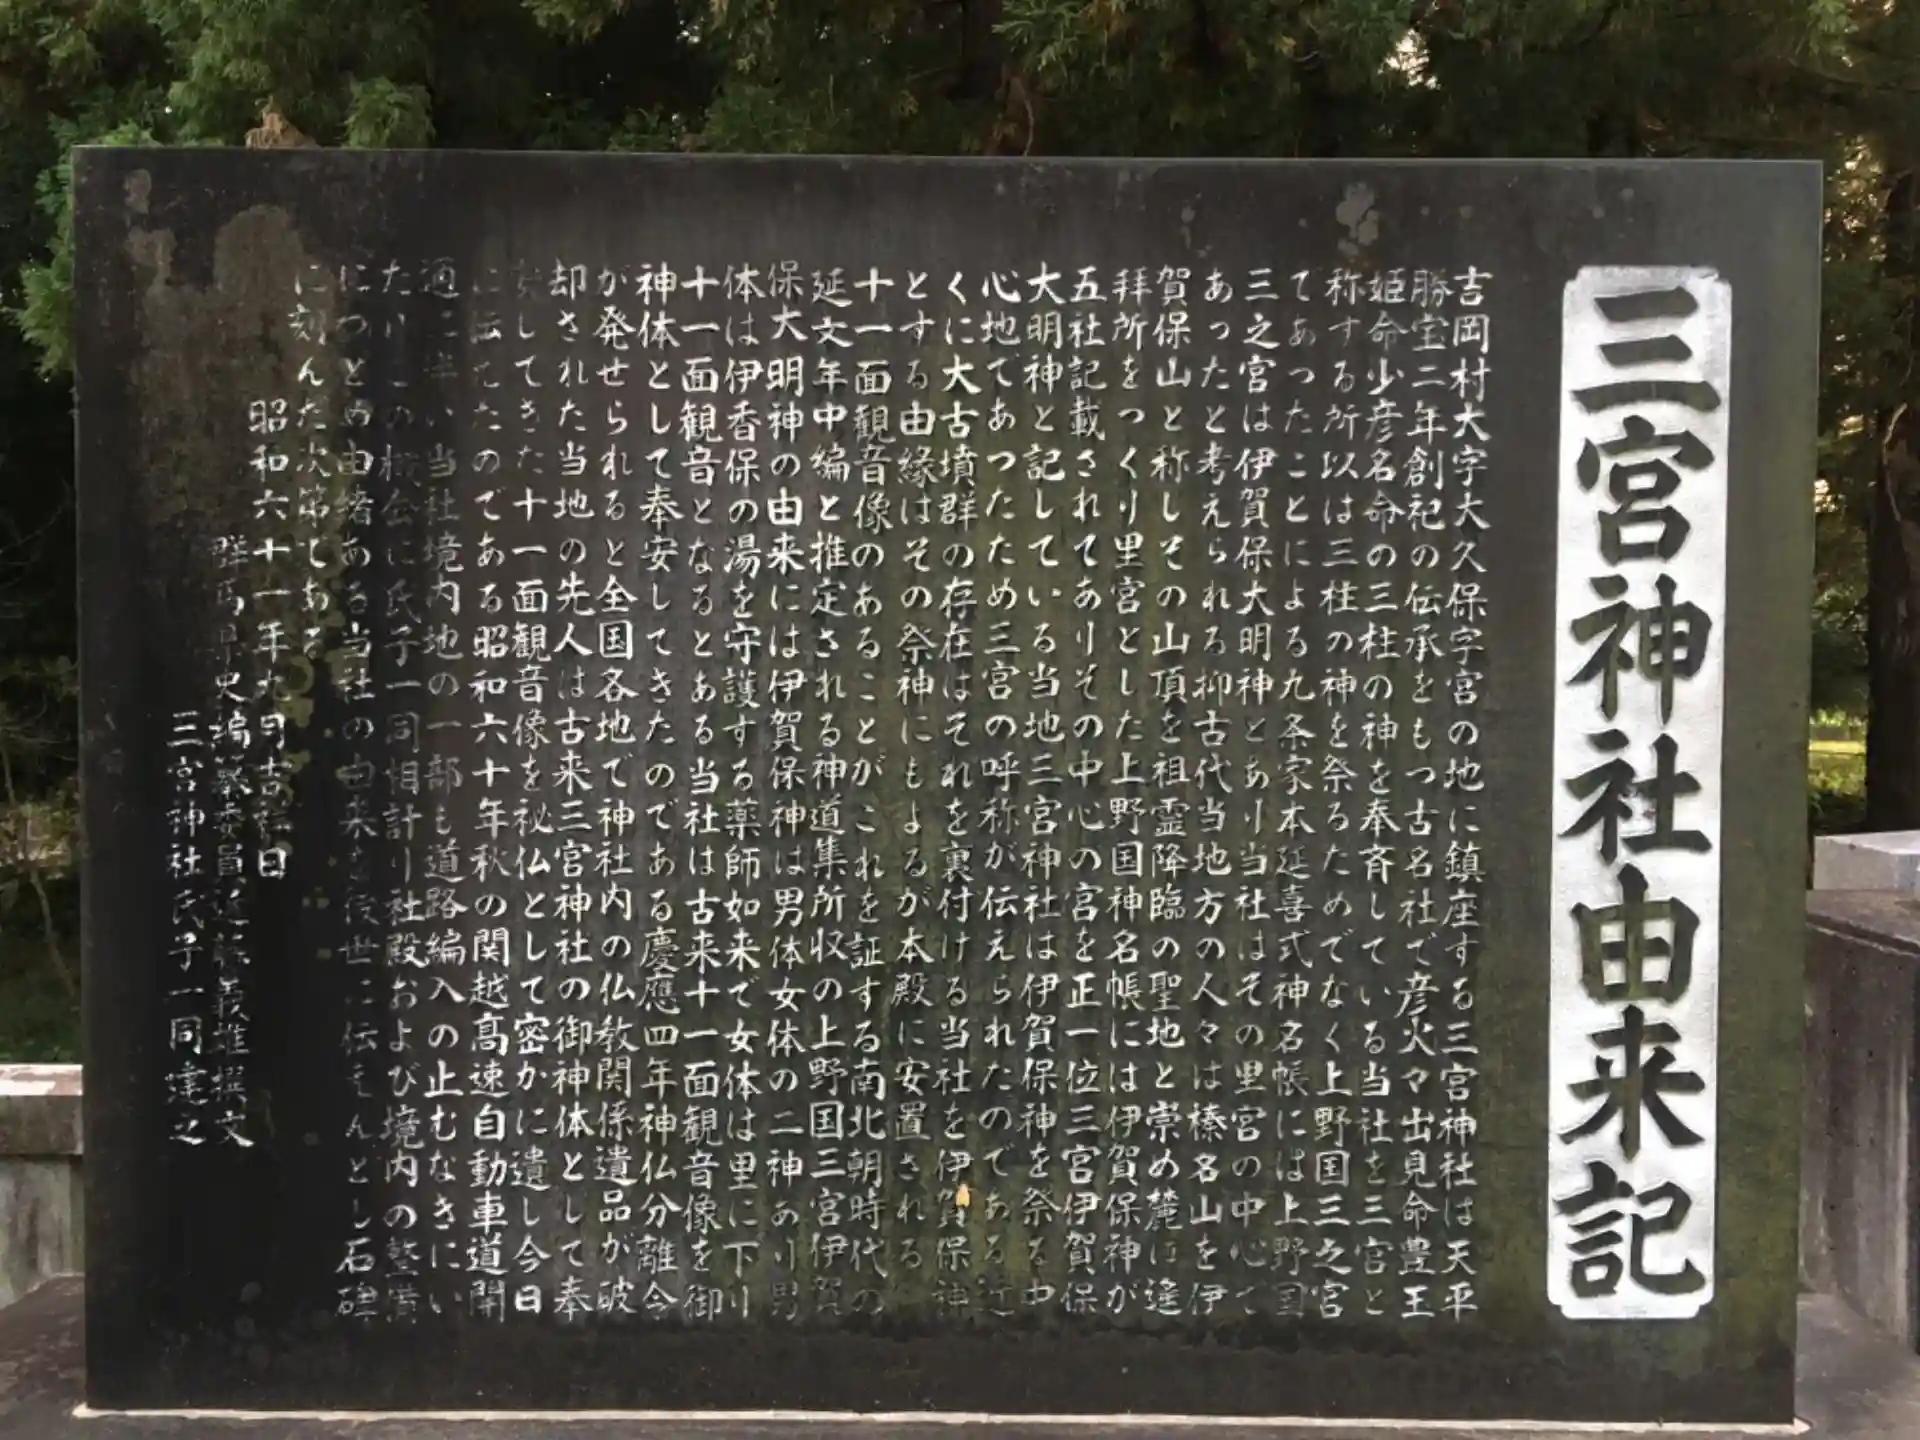 三宮神社由来記
吉岡村大字大久保字宮の地に鎮座する三宮神社は天平
勝宝二年創祀の伝承をもつ古名社で彦火々出見命豊玉
姫命少彦名命の三柱の神を奉斉している当社を三宮と
称する所以は三柱の神を祭るためでなく上野国三之宮
てあったことによる九条家本延喜式神名帳には上野国
三之宮は伊賀保大明神とあり当社はその里宮の中心て
あったと考えられる抑古代当地方の人々は榛名山を伊
賀保山と称しその山頂を祖霊降臨の聖地と崇め麓に遙
拝所をつくり里宮とした上野国神名帳には伊賀保神が
五社記載されてありその中心の宮を正一位三宮伊賀保
大明神と記している当地三宮神社は伊賀保神を祭る中
心地てあつたため三宮の呼称が伝えられたのである近
くに大古墳群の存在はそれを裏付ける当社を伊賀保神
とする由縁はその祭神にもよるが本殿に安置される
十一面観音像のあることがこれを証する南北朝時代の
延文年中編と推定される神道集所収の上野国三宮伊賀
保大明神の由来には伊賀保神は男体女体の二神あり男
体は伊香保の湯を守護する薬師如来で女体は里に下り
十一面観音となるとある当社は古来十一面観音像を御
神体として奉安してきたのである慶應四年神仏分離令
が発せられると全国各地で神社内の仏教関係遺品が破
却された当地の先人は古来三宮神社の御神体として奉
安してきた十一面観音像を秘仏として密かに遺し今日
に伝えたのである昭和六十年秋の関越高速自動車道開
通に伴い当社境内地の一部も道路編入の止むなきにい
たりこの機会に氏子一同相計り社殿および境内の整備
につとめ由緒ある当社の由来を後世に伝えんとし石碑
に刻んだ次第てある
昭和六十一年九月吉祥日
群馬県史編纂委員近藤義雄撰文
三宮神社氏子一同建之